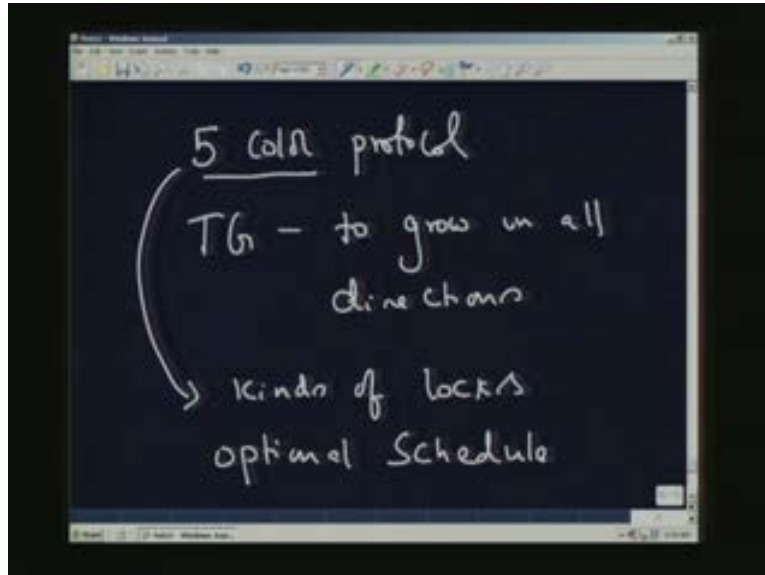 5 color protocol
TG - to grow in all
directions
kinds of locks
optimal Schedule